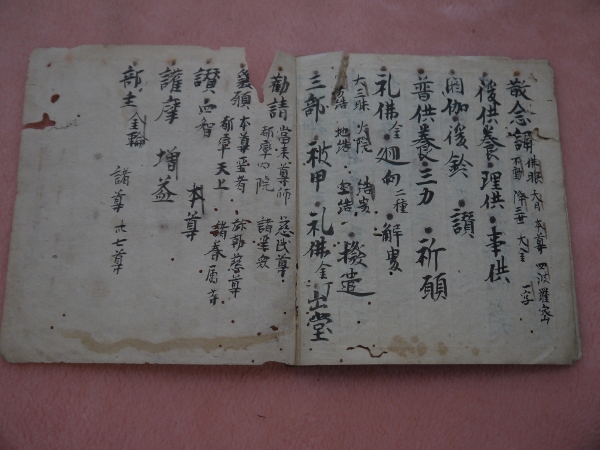 散念誦 佛眼 大日 本尊 四波羅蜜
不動 降三世 大金 一字
後供養・理供・事供
閼伽・後鈴 讃
普供養・三力・祈願
礼佛 金 廻向 二種 解界
大三昧 火院 網界
地結 撥遣
三部・被甲・礼佛 金 出堂
勧請 當来尊師 慈氏尊
都率内院 諸聖衆
發願 本尊聖者 弥勒慈尊
都率天上 諸眷属等
讃 四智 本尊
護摩 増益
部主 金輪 諸尊 卅七尊